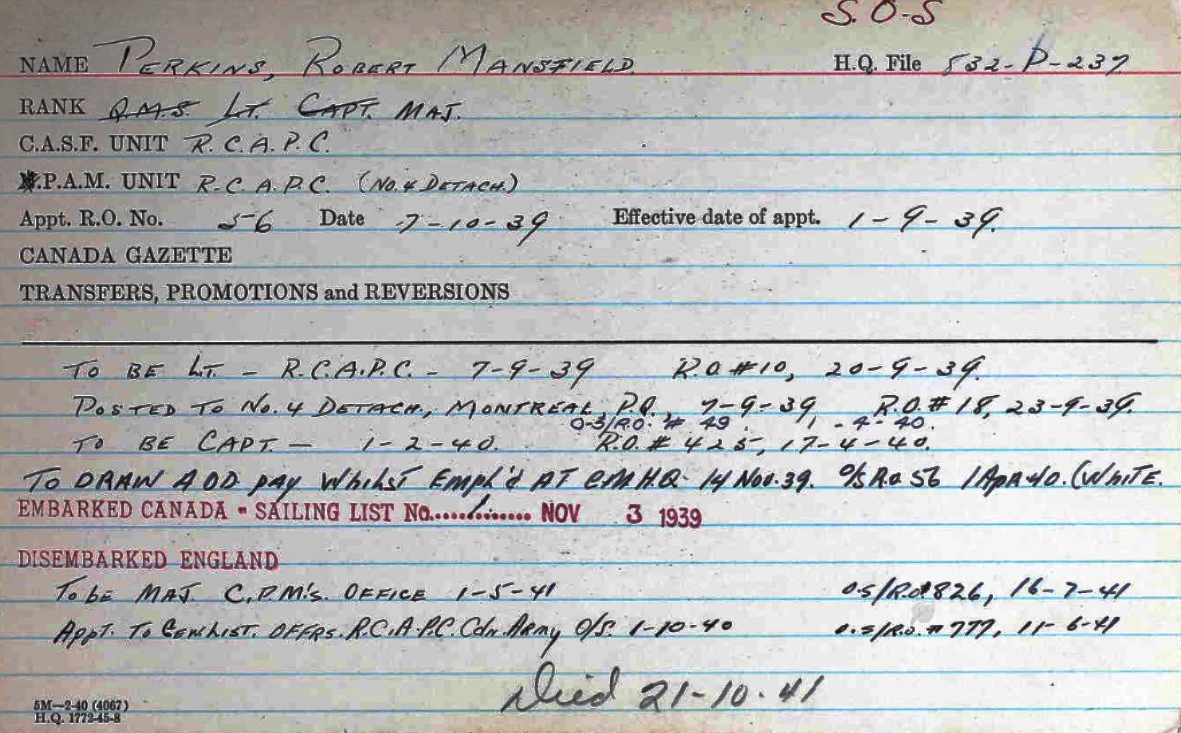 S.O.S
NAME PERKINS, ROBERT MANSFIELD. H.Q. File 532-P-237
RANK Q.M.S. LT. CAPT. MAJ.
C.A.S.F. UNIT R.C.A.P.C.
N.P.A.M. UNIT R.C.A.P.C. (No. 4 DETACH.)
Appt. R.O. No. 56 Date 7-10-39 Effective date of appt. 1-9-39.
CANADA GAZETTE
TRANSFERS, PROMOTIONS and REVERSIONS
TO BE LT. - R.C.A.P.C. - 7-9-39 R.O. #10, 20-9-39.
POSTED TO No. 4 DETACH., MONTREAL, P.Q., 7-9-39, R.O. # 18, 23-9-39.
O-S/R.O. # 49. 1-4-40.
TO BE CAPT. - 1-2-40. R.O. # 425, 17-4-40.
TO DRAW ADD PAY Whilst Empl'd AT CMHQ. 14 Nov. 39. O/S R.O 56 1 Apr 40. (WHITE.
EMBARKED CANADA - SAILING LIST No. 1 NOV 3 1939
DISEMBARKED ENGLAND
To be MAJ. C.P.M's. OFFICE 1-5-41 O.S/R.O# 826, 16-7-41
APPT. TO GEN. LIST. OFFRS. R.C.A.P.C. Cdn. Army O/S. 1-10-40 O.S/R.O. # 777, 11-6-41
Died 21-10-41
5M—2-40 (4067)
H.Q. 1772-45-8